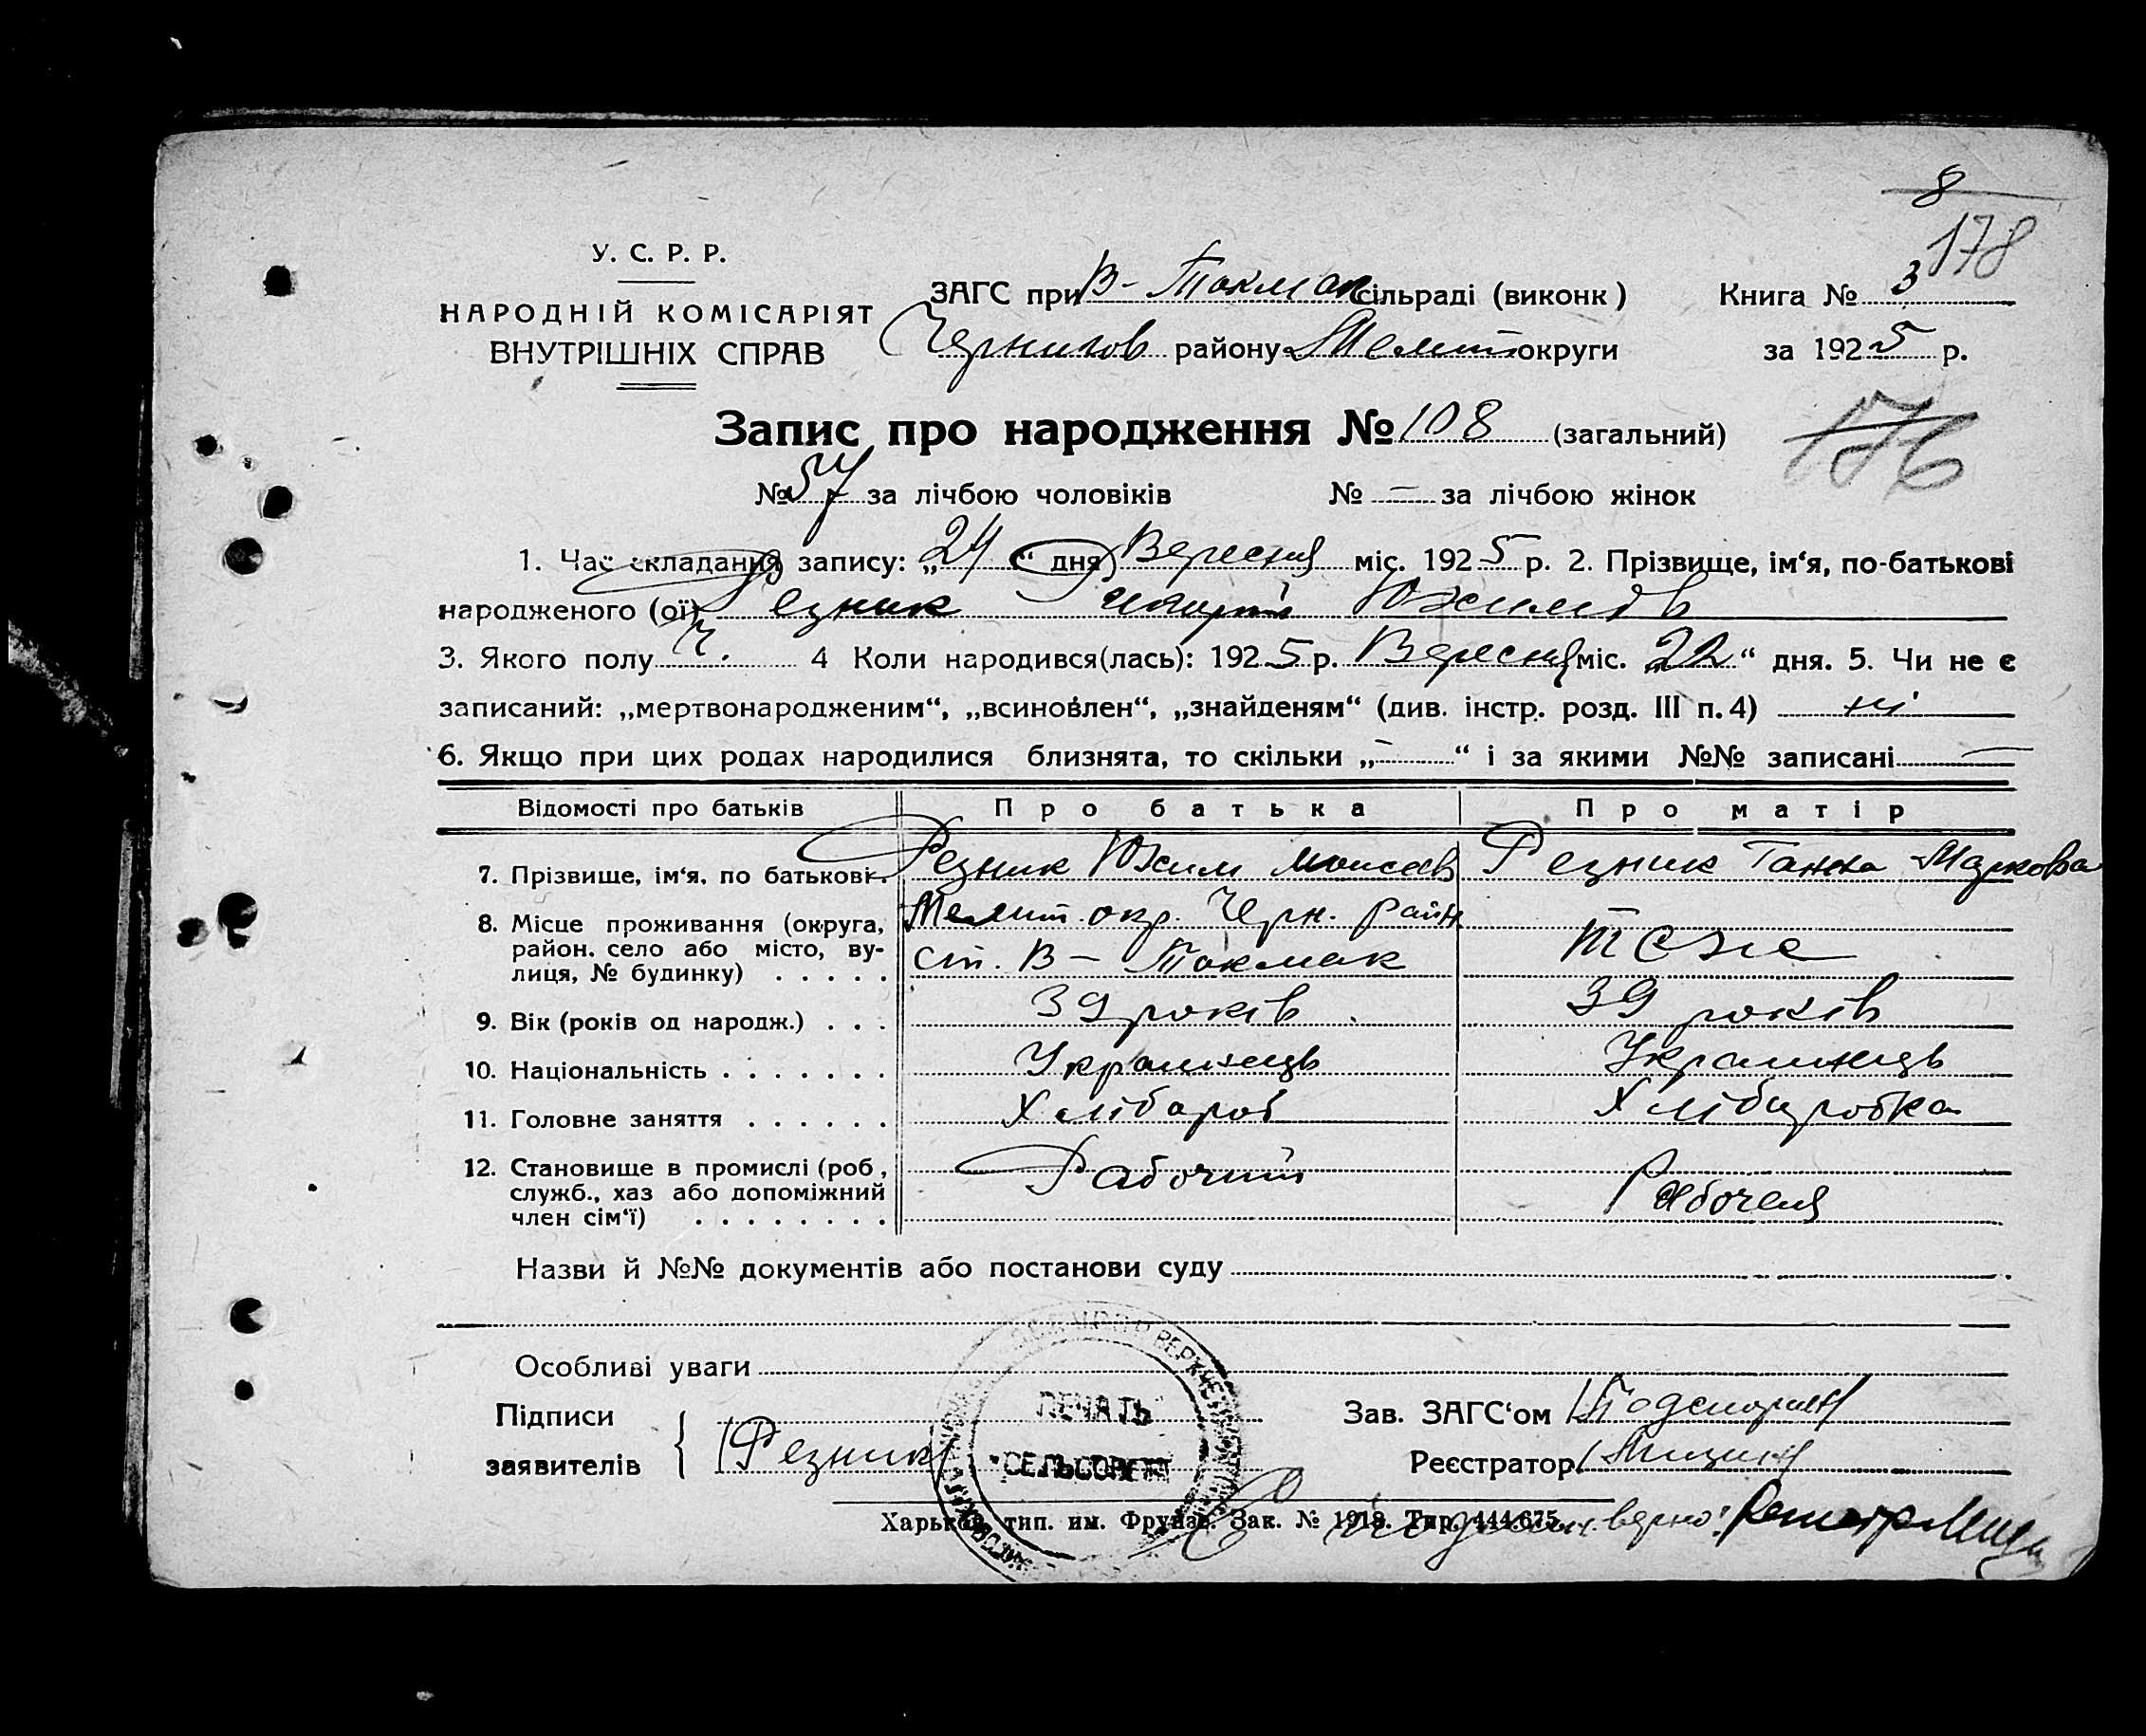 8
178
У. С. Р. Р.
НАРОДНІЙ КОМІСАРІЯТ
ВНУТРІШНІХ СПРАВ
ЗАГС при В- Токмак сільраді (виконк)
Книга № 3
Чернигов району Мелит округи
за 1925 р.
Запис про народження № 108 (загальний)
176
№ 57 за лічбою чоловіків № — за лічбою жінок
1. Час складання запису: „24“ дня Вересня міс. 1925 р. 2. Прізвище, ім‘я, по-батькові
народженого (ої) Резник Юхимов
3. Якого полу ч. 4 Коли народився(лась): 1925 р. Вересня міс. „22“ дня. 5. Чи не є
записаний: „мертвонародженим“, „всиновлен“, „знайденям“ (див. інстр. розд. III п. 4) ні
6. Якщо при цих родах народилися близнята, то скільки „—“ і за якими №№ записані —
Відомості про батьків Про батька Про матір
7. Прізвище, ім‘я, по батькові. Резник Юхим Моисеев Резник Ганна Маркова
8. Місце проживання (округа, район, село або місто, вулиця, № будинку) . . . . .
Мелит. окр. Черн. район
ст. В- Токмак
теже
9. Вік (років од народж.) . . . 39 років 39 років
10. Національність . . . . . . . Украинець Украинець
11. Головне заняття . . . . . . Хлібароб Хлібаробка
12. Становище в промислі (роб., служб., хаз або допоміжний член сім‘ї) . . . . . . . .
Рабочий
Рабочея
Назви й №№ документів або постанови суду
Особливі уваги
Підписи
заявителів Резник
ПЕЧАТЬ
СЕЛЬСОВЕТА
Зав. ЗАГС‘ом
Реєстратор
Харьков, тип. им. Фрунзе. Зак. № 1918. Тир. 444.675.
верно: